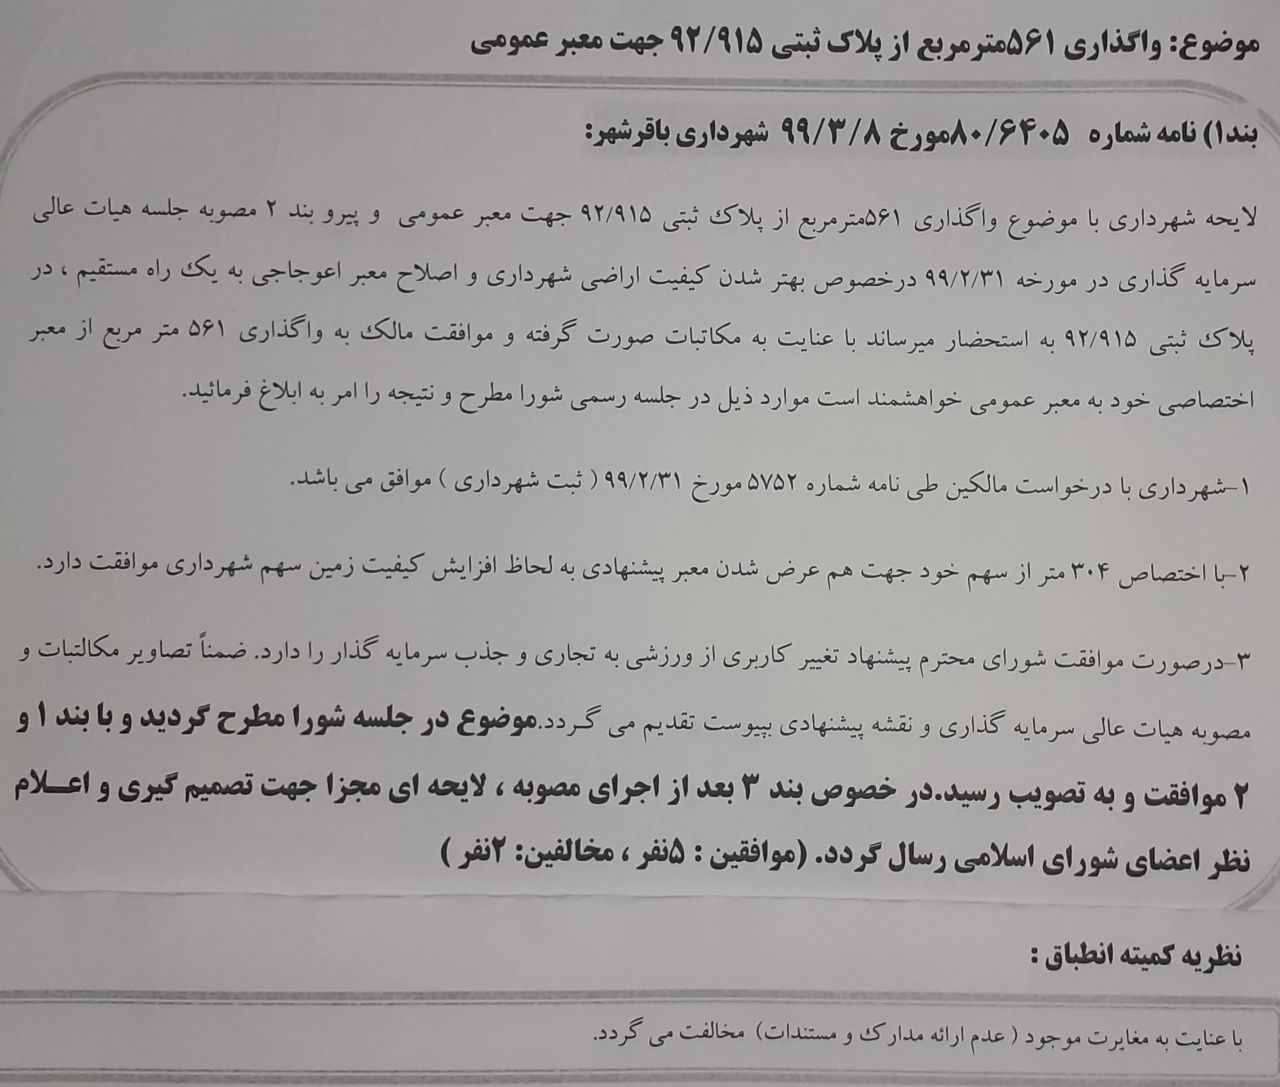 موضوع: واگذاری ۵۶۱مترمربع از پلاک ثبتی ۹۲/۹۱۵ جهت معبر عمومی
بند۱) نامه شماره ۸۰/۶۴۰۵مورخ ۹۹/۳/۸ شهرداری باقرشهر:
لایحه شهرداری با موضوع واگذاری ۵۶۱مترمربع از پلاک ثبتی ۹۲/۹۱۵ جهت معبر عمومی و پیرو بند ۲ مصوبه جلسه هیات عالی
سرمایه گذاری در مورخه ۹۹/۲/۳۱ درخصوص بهتر شدن کیفیت اراضی شهرداری و اصلاح معبر اعوجاجی به یک راه مستقیم ، در
پلاک ثبتی ۹۲/۹۱۵ به استحضار میرساند با عنایت به مکاتبات صورت گرفته و موافقت مالک به واگذاری ۵۶۱ متر مربع از معبر
اختصاصی خود به معبر عمومی خواهشمند است موارد ذیل در جلسه رسمی شورا مطرح و نتیجه را امر به ابلاغ فرمائید.
۱-شهرداری با درخواست مالکین طی نامه شماره ۵۷۵۲ مورخ ۹۹/۲/۳۱ ( ثبت شهرداری ) موافق می باشد.
۲-با اختصاص ۳۰۴ متر از سهم خود جهت هم عرض شدن معبر پیشنهادی به لحاظ افزایش کیفیت زمین سهم شهرداری موافقت دارد.
۳-درصورت موافقت شورای محترم پیشنهاد تغییر کاربری از ورزشی به تجاری و جذب سرمایه گذار را دارد. ضمناً تصاویر مکالتبات و
مصوبه هیات عالی سرمایه گذاری و نقشه پیشنهادی بپیوست تقدیم می گـردد.موضوع در جلسه شورا مطرح گردید و با بند ۱ و
۲ موافقت و به تصویب رسید.در خصوص بند ۳ بعد از اجرای مصوبه ، لایحه ای مجزا جهت تصمیم گیری و اعـــلام
نظر اعضای شورای اسلامی رسال گردد. (موافقین : ۵نفر ، مخالفین: ۲نفر )
نظریه کمیته انطباق :
با عنایت به مغایرت موجود ( عدم ارائه مدارک و مستندات) مخالفت می گردد.